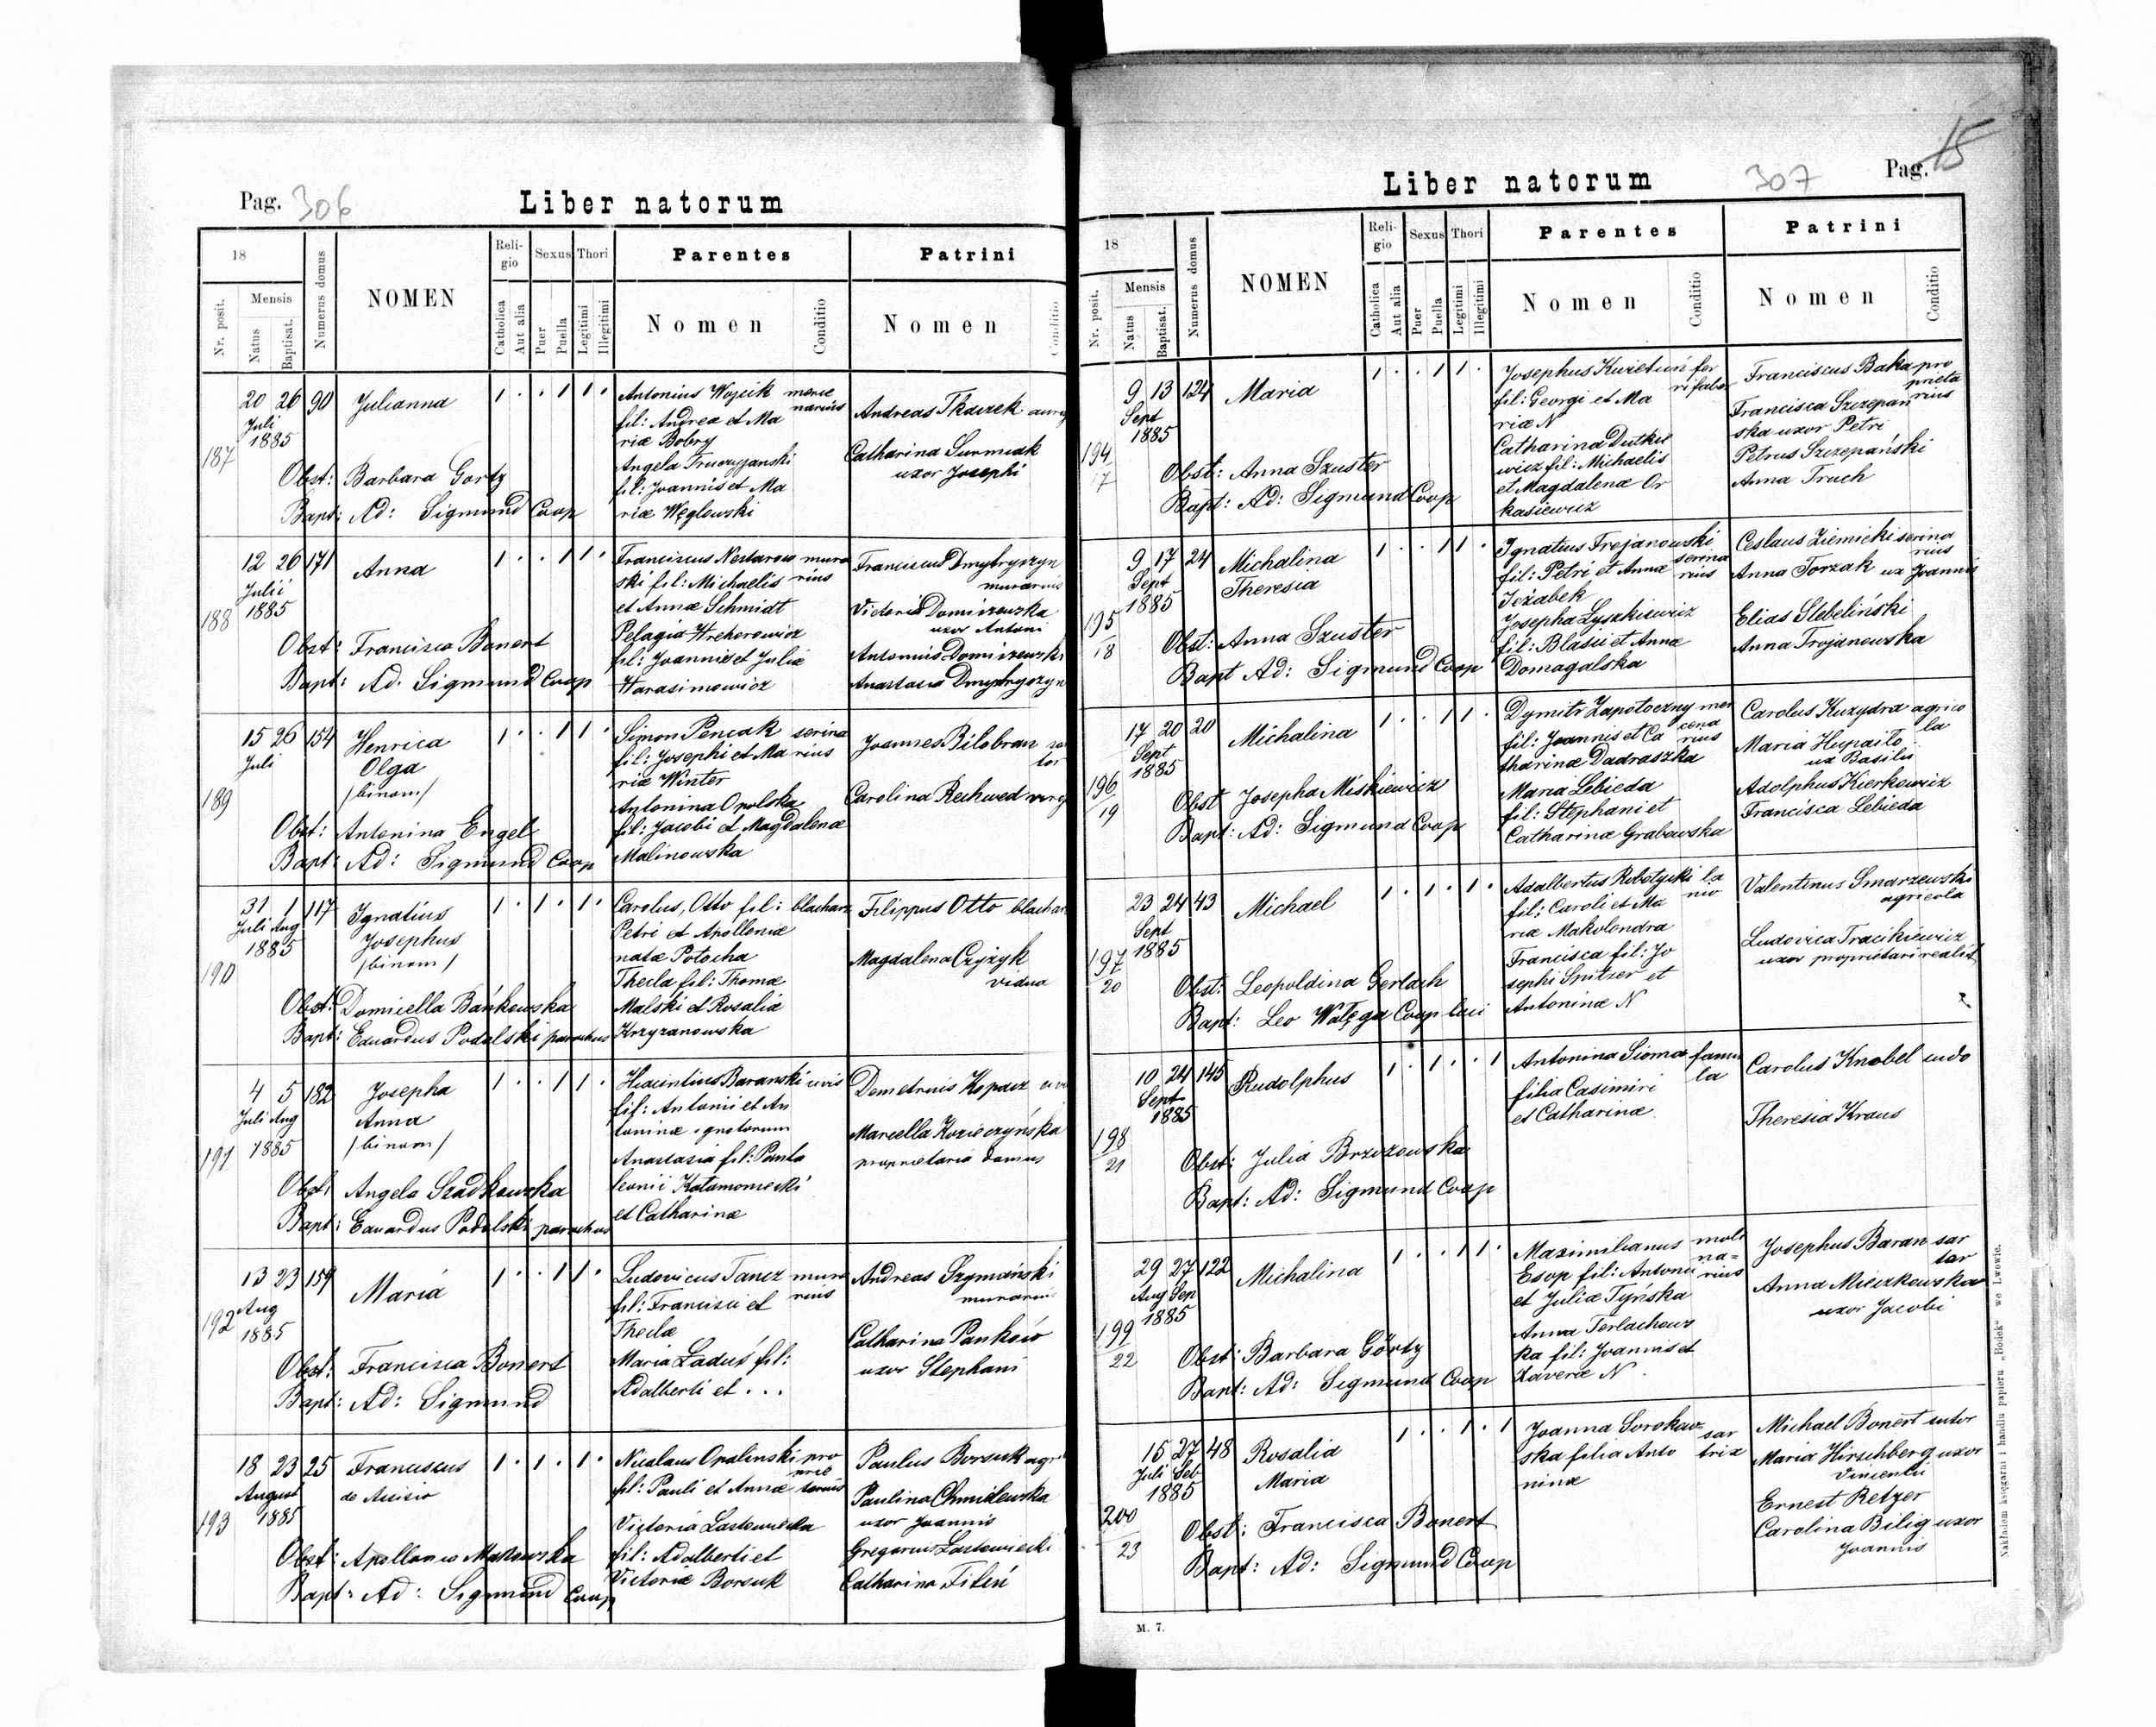 Pag. 306
Liber natorum
18
Nr. posit.
Mensis
Natus
Baptisat.
Numerus domus
NOMEN
Religio
Catholica
Aut alia
Sexus
Puer
Puella
Thori
Legitimi
Illegitimi
Parentes
Nomen
Conditio
Patrini
Nomen
Conditio
187
20 26 90
Juli
1885
Julianna
1 . . 1 1 .
Obst: Barbara Gortz
Bapt: Ad: Sigmund Coop
Antonius Wojcik merce
fil: Andreæ et Ma narius
riæ Bobry
Angela
fil: Joannis et Ma
riæ Węglowski
Andreas Tkaczek
Catharina Surmiak
uxor Josephi
188
12 26 171
Julii
1885
Anna
1 . . 1 1 .
Obst: Francisca Bonert
Bapt: Ad. Sigmund Coop
Franciscus Nestorow mura
ski fil: Michaelis rius
et Annæ Schmidt
Pelagia Hrehorowicz
fil: Joannis et Juliæ
Harasimowicz
Franciscus Dmytryszyn
murarius
Victoria Domiszewska
uxor Antoni
Antonius Domiszewski
Anastasia Dmytryszyn
189
15 26 154
Juli
Henrica
Olga
/binom/
1 . . 1 1 .
Obst: Antonina Engel
Bapt: Ad: Sigmund Coop
Simon Pencak serina
fil: Josephi et Ma rius
riæ Winter
Antonina Opolska
fil: Jacobi et Magdalenæ
Malinowska
Joannes Bilobran
Carolina Rechwed
190
31 1 117
Juli Aug
1885
Ignatius
Josephus
/binom/
1 . 1 . 1 .
Obst: Domicella Bańkowska
Bapt: Eduardus Podolski parochus
Carolus, Otto fil: blacharz
Petri et Apolloniæ
natæ Potocka
Thecla fil: Thomæ
Malski et Rosaliæ
Krzyzanowska
Filippus Otto blachar
Magdalena Czyżyk
vidua
191
4 5 182
Juli Aug
1885
Josepha
Anna
/binom/
1 . . 1 1 .
Obst: Angela Szadkowska
Bapt: Eduardus Podolski parochus
Hiacintius Baranski civis
fil: Antonii et An
toninæ ignotorum
Anastasia fil: Panta
leonii Katamoniecki
et Catharinæ
Demetrius Kopacz
Marcella Kozieczyńska
proprietaria domus
192
13 23 159
Aug
1885
Maria
1 . . 1 1 .
Obst: Francisca Bonert
Bapt: Ad: Sigmund
Ludovicus Tancz mura
fil: Francisci et rius
Theclæ
Maria Ładuś fil:
Adalberti et . . .
Andreas Szymański
murarius
Catharina Panków
uxor Stephani
193
18 23 25
August
1885
Franciscus
de Assisio
1 . 1 . 1 .
Obst: Apollonia Matowska
Bapt: Ad: Sigmund Coop
Nicolaus Opalinski pro
fil: Pauli et Annæ
Victoria Lastowiecka
fil: Adalberti et
Victoriæ Borsuk
Paulus Borsuk
Paulina Chmilewska
uxor Joannis
Gregorius Lastowiecki
Catharina Fileń
Liber natorum 307 Pag. 15
18
Nr. posit.
Mensis
Natus
Baptisat.
Numerus domus
NOMEN
Religio
Catholica
Aut alia
Sexus
Puer
Puella
Thori
Legitimi
Illegitimi
Parentes
Nomen
Conditio
Patrini
Nomen
Conditio
194
17
9 13 124
Sept
1885
Maria
1 . . 1 1 .
Obst: Anna Szuster
Bapt: Ad: Sigmund Coop
Josephus Kwietuń fer
fil: Georgi et Ma rifaber
riæ N
Catharina Dutkie
wicz fil: Michaelis
et Magdalenæ Or
kasiewicz
Franciscus Baka pro
prieta
rius
Francisca Szczepań
ska uxor Petri
Petrus Szczepański
Anna Truch
195
18
9 17 24
Sept
1885
Michalina
Theresia
1 . . 1 1 .
Obst: Anna Szuster
Bapt Ad: Sigmund Coop
Ignatius Trojanowski
fil: Petri et Annæ serina
rius
Jeżabek
Josepha Łyszkiewicz
fil: Blasii et Annæ
Domagalska
Ceslaus Ziemicki serina
rius
Anna Torzak ux Joannis
Elias Slebeliński
Anna Trojanowska
196
19
17 20 20
Sept
1885
Michalina
1 . . 1 1 .
Obst Josepha Miskiewicz
Bapt: Ad: Sigmund Coop
Dymitr Zapotoczny mer
fil: Joannis et Ca cena
rius
tharinæ Dadraszka
Maria Lebieda
fil: Stephani et
Catharinæ Grabowska
Carolus Kuzydra agrico
la
Maria Hupaiło
ux Basilii
Adolphus Kierkowicz
Francisca Lebieda
197
20
23 24 43
Sept
1885
Michael
1 . 1 . 1 .
Obst: Leopoldina Gerlach
Bapt: Leo Wałęga Coop loci
Adalbertus Robotycki la
fil: Caroli et Ma nio
riæ Makolondra
Francisca fil: Jo
sephi Spitzer et
Antoninæ N
Valentinus Smarzewski
agricola
Ludovica Tracikiewicz
uxor proprietari realit
198
21
10 24 145
Sept
1885
Rudolphus
1 . 1 . . 1
Obst: Julia Brzozowska
Bapt: Ad: Sigmund Coop
Antonina Sioma famu
filia Casimiri la
et Catharinæ
Carolus Knobel
Theresia Kraus
199
22
29 27 122
Aug Sep
1885
Michalina
1 . . 1 1 .
Obst: Barbara Görtz
Bapt: Ad: Sigmund Coop
Maximilianus moli
na=
Esop fil: Antonii rius
et Juliæ Tyńska
Anna Terlachows
ka fil: Joannis et
Xaveræ N
Josephus Baran sar
tor
Anna Mieszkowska
uxor Jacobi
200
23
15 27 48
Juli
1885
Rosalia
Maria
1 . . 1 . 1
Obst: Francisca Bonert
Bapt: Ad: Sigmund Coop
Joanna Sorokow sar
ska filia Anto trix
ninæ
Michael Bonert sutor
Maria Hirschberg uxor
Vincentii
Ernest Retzer
Carolina Bilig uxor
Joannis
M. 7.
Nakładem księgarni i handlu papieru „Bodek“ we Lwowie.